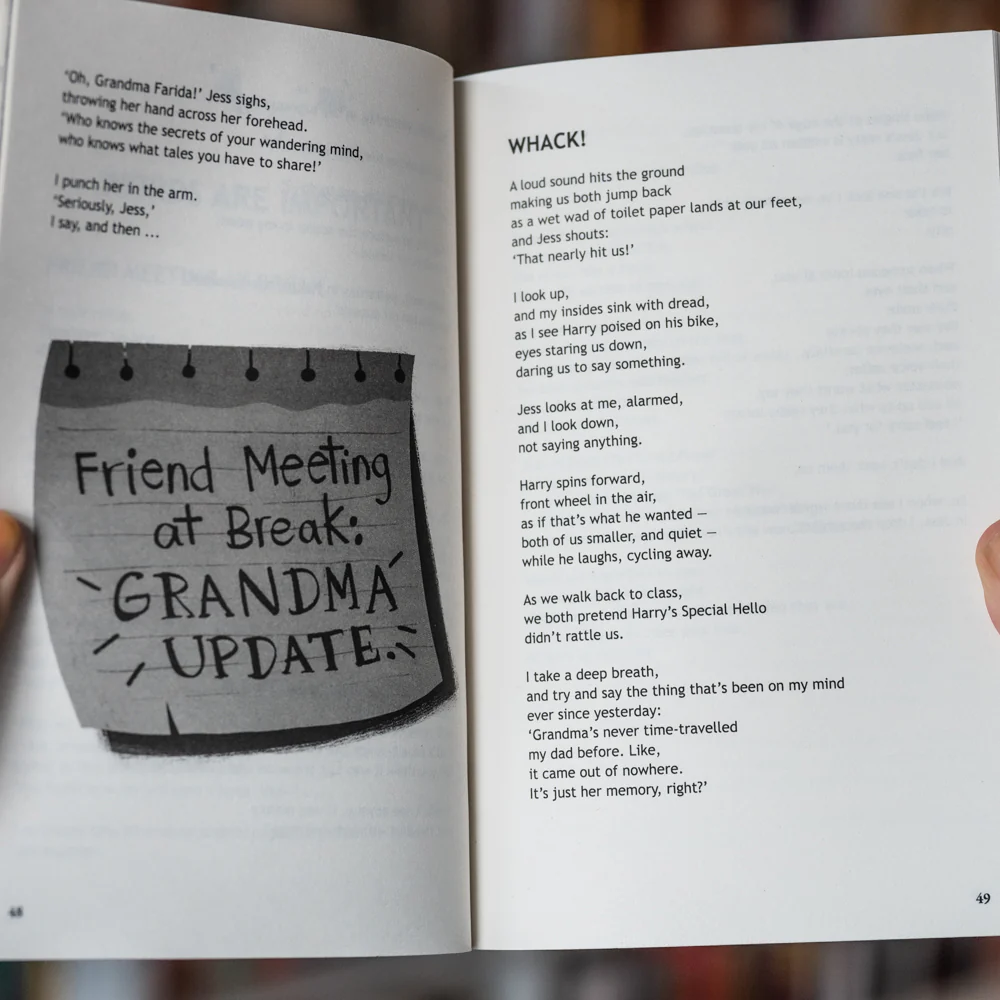 ‘Oh, Grandma Farida!’ Jess sighs,
throwing her hand across her forehead.
‘Who knows the secrets of your wandering mind,
who knows what tales you have to share!’
I punch her in the arm.
‘Seriously, Jess,’
I say, and then …
Friend Meeting
at Break:
GRANDMA
UPDATE.
48
WHACK!
A loud sound hits the ground
making us both jump back
as a wet wad of toilet paper lands at our feet,
and Jess shouts:
‘That nearly hit us!’
I look up,
and my insides sink with dread,
as I see Harry poised on his bike,
eyes staring us down,
daring us to say something.
Jess looks at me, alarmed,
and I look down,
not saying anything.
Harry spins forward,
front wheel in the air,
as if that’s what he wanted –
both of us smaller, and quiet –
while he laughs, cycling away.
As we walk back to class,
we both pretend Harry’s Special Hello
didn’t rattle us.
I take a deep breath,
and try and say the thing that’s been on my mind
ever since yesterday:
‘Grandma’s never time-travelled
my dad before. Like,
it came out of nowhere.
It’s just her memory, right?’
49